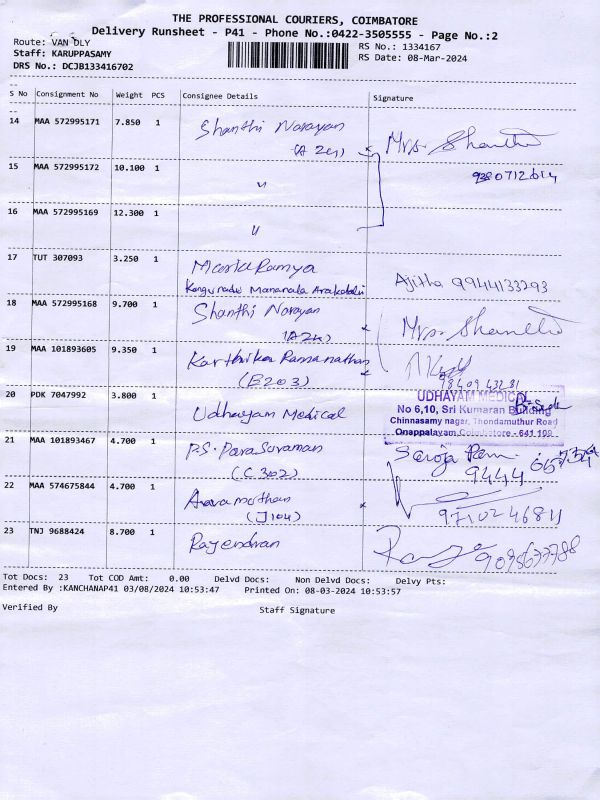 THE PROFESSIONAL COURIERS, COIMBATORE
Delivery Runsheet - P41 - Phone No.:0422-3505555 - Page No.:2
Route: VAN DLY
Staff: KARUPPASAMY
DRS No.: DCJB133416702
RS No.: 1334167
RS Date: 08-Mar-2024
S No Consignment No Weight PCS Consignee Details Signature
14 MAA 572995171 7.850 1 Shanthi Narayan Mrs. Shanthi
(A 24)
15 MAA 572995172 10.100 1 " 9380712614
16 MAA 572995169 12.300 1 "
17 TUT 307093 3.250 1 Ajitha 9944133293
18 MAA 572995168 9.700 1 Shanthi Narayan Mrs. Shanthi
(A24)
19 MAA 101893605 9.350 1 Karthika Ramanathan
(E203)
20 PDK 7047992 3.800 1 Udhayam Medical
UDHAYAM MEDICAL
No 6,10, Sri Kumaran Building
Chinnasamy nagar, Thondamuthur Road
Onappalayam, Coimbatore - 641 109
21 MAA 101893467 4.700 1 P.S. Parasuraman
(C 302) 9444
22 MAA 574675844 4.700 1
(J104) 9710246811
23 TNJ 9688424 8.700 1 Rajendran
Tot Docs: 23 Tot COD Amt: 0.00 Delvd Docs: Non Delvd Docs: Delvy Pts:
Entered By :KANCHANAP41 03/08/2024 10:53:47 Printed On: 08-03-2024 10:53:57
Verified By Staff Signature